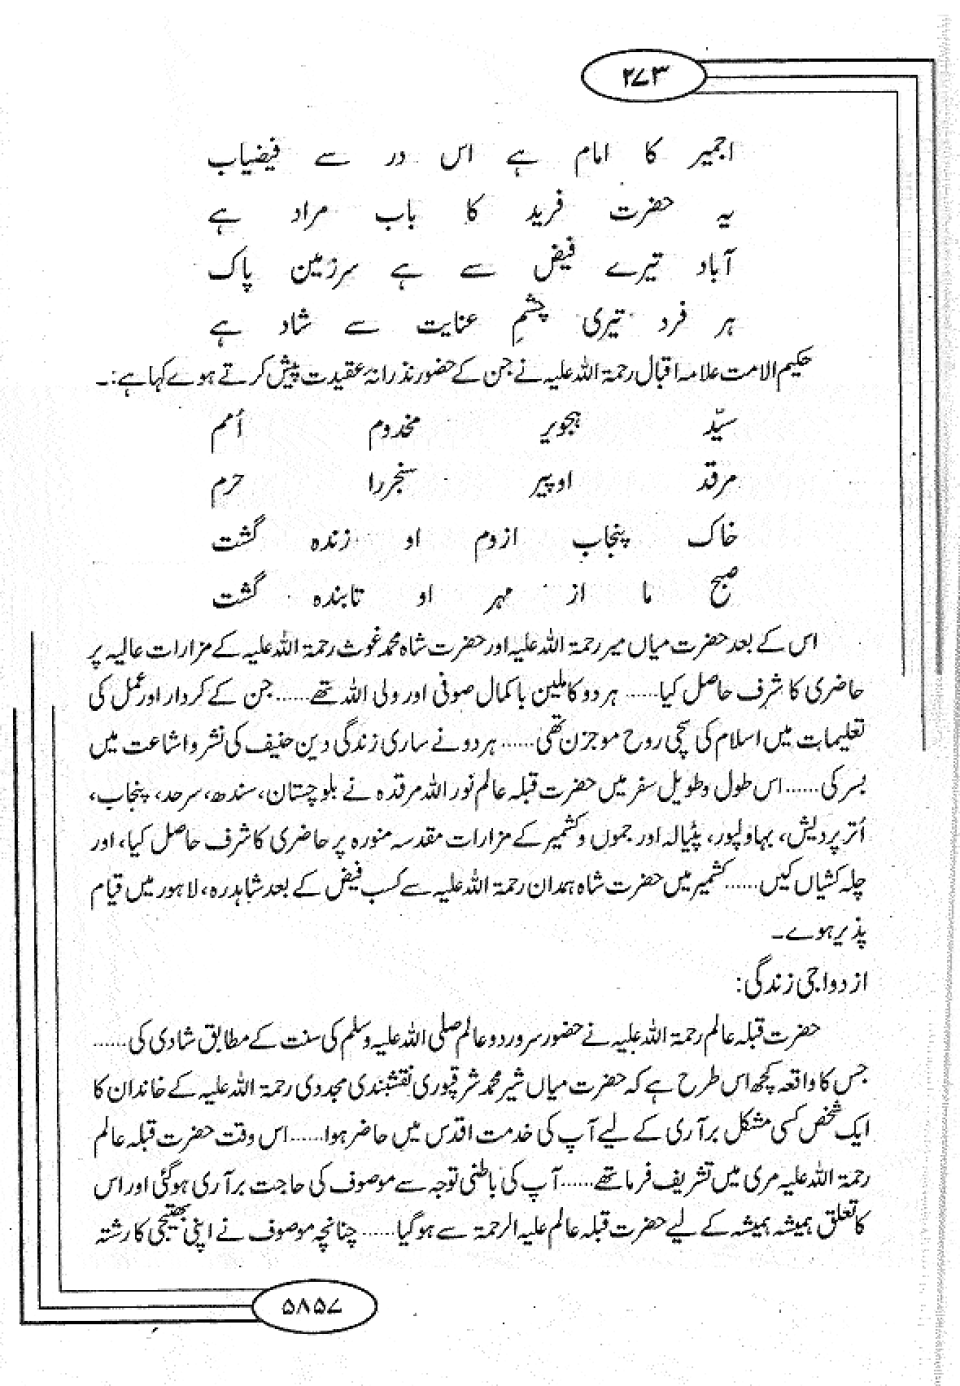 ۲۷۳
اجمیر کا امام ہے اس در سے فیضیاب
یہ حضرت فرید کا باب مراد ہے
آباد تیرے فیض سے ہے سرزمین پاک
ہر فرد تیری چشمِ عنایت سے شاد ہے
حکیم الامت علامہ اقبال رحمۃ اللہ علیہ نے جن کے حضور نذرانہ عقیدت پیش کرتے ہوے کہا ہے:۔
سیّد ہجویر مخدوم اُمم
مرقد اوپیر سنجررا حرم
خاک پنجاب ازدم او زندہ گشت
صبح ما از مہر او تابندہ گشت
اس کے بعد حضرت میاں میر رحمۃ اللہ علیہ اور حضرت شاہ محمد غوث رحمۃ اللہ علیہ کے مزارات عالیہ پر
حاضری کا شرف حاصل کیا...... ہر دو کاملین باکمال صوفی اور ولی اللہ تھے...... جن کے کردار اور عمل کی
تعلیمات میں اسلام کی سچی روح موجزن تھی...... ہر دو نے ساری زندگی دین حنیف کی نشر و اشاعت میں
بسر کی...... اس طول و طویل سفر میں حضرت قبلہ عالم نور اللہ مرقدہ نے بلوچستان، سندھ، سرحد، پنجاب،
اُتر پردیش، بہاولپور، پٹیالہ اور جموں و کشمیر کے مزارات مقدسہ منورہ پر حاضری کا شرف حاصل کیا، اور
چلہ کشیاں کیں...... کشمیر میں حضرت شاہ ہمدان رحمۃ اللہ علیہ سے کسب فیض کے بعد شاہدرہ، لاہور میں قیام
پذیر ہوے۔
ازدواجی زندگی:
حضرت قبلہ عالم رحمۃ اللہ علیہ نے حضور سرور دو عالم صلی اللہ علیہ وسلم کی سنت کے مطابق شادی کی......
جس کا واقعہ کچھ اس طرح ہے کہ حضرت میاں شیر محمد شرقپوری نقشبندی مجددی رحمۃ اللہ علیہ کے خاندان کا
ایک شخص کسی مشکل برآری کے لیے آپ کی خدمت اقدس میں حاضر ہوا...... اس وقت حضرت قبلہ عالم
رحمۃ اللہ علیہ مری میں تشریف فرما تھے...... آپ کی باطنی توجہ سے موصوف کی حاجت برآری ہوگئی اور اس
کا تعلق ہمیشہ ہمیشہ کے لیے حضرت قبلہ عالم علیہ الرحمۃ سے ہوگیا...... چنانچہ موصوف نے اپنی بھتیجی کا رشتہ
۵۸۵۷